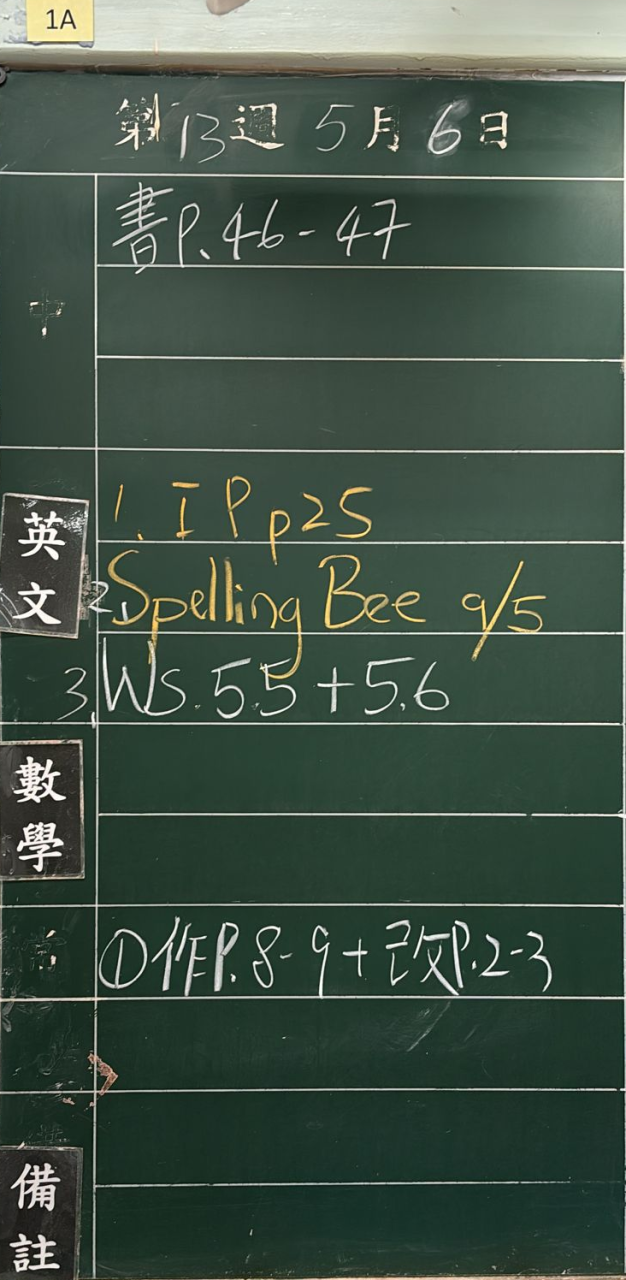 1A
第13週 5月6日
書P.46-47
中
1. I P p25
英文
2. Spelling Bee 9/5
3. WS.5.5+5.6
數學
①作P.8-9+改P.2-3
備註